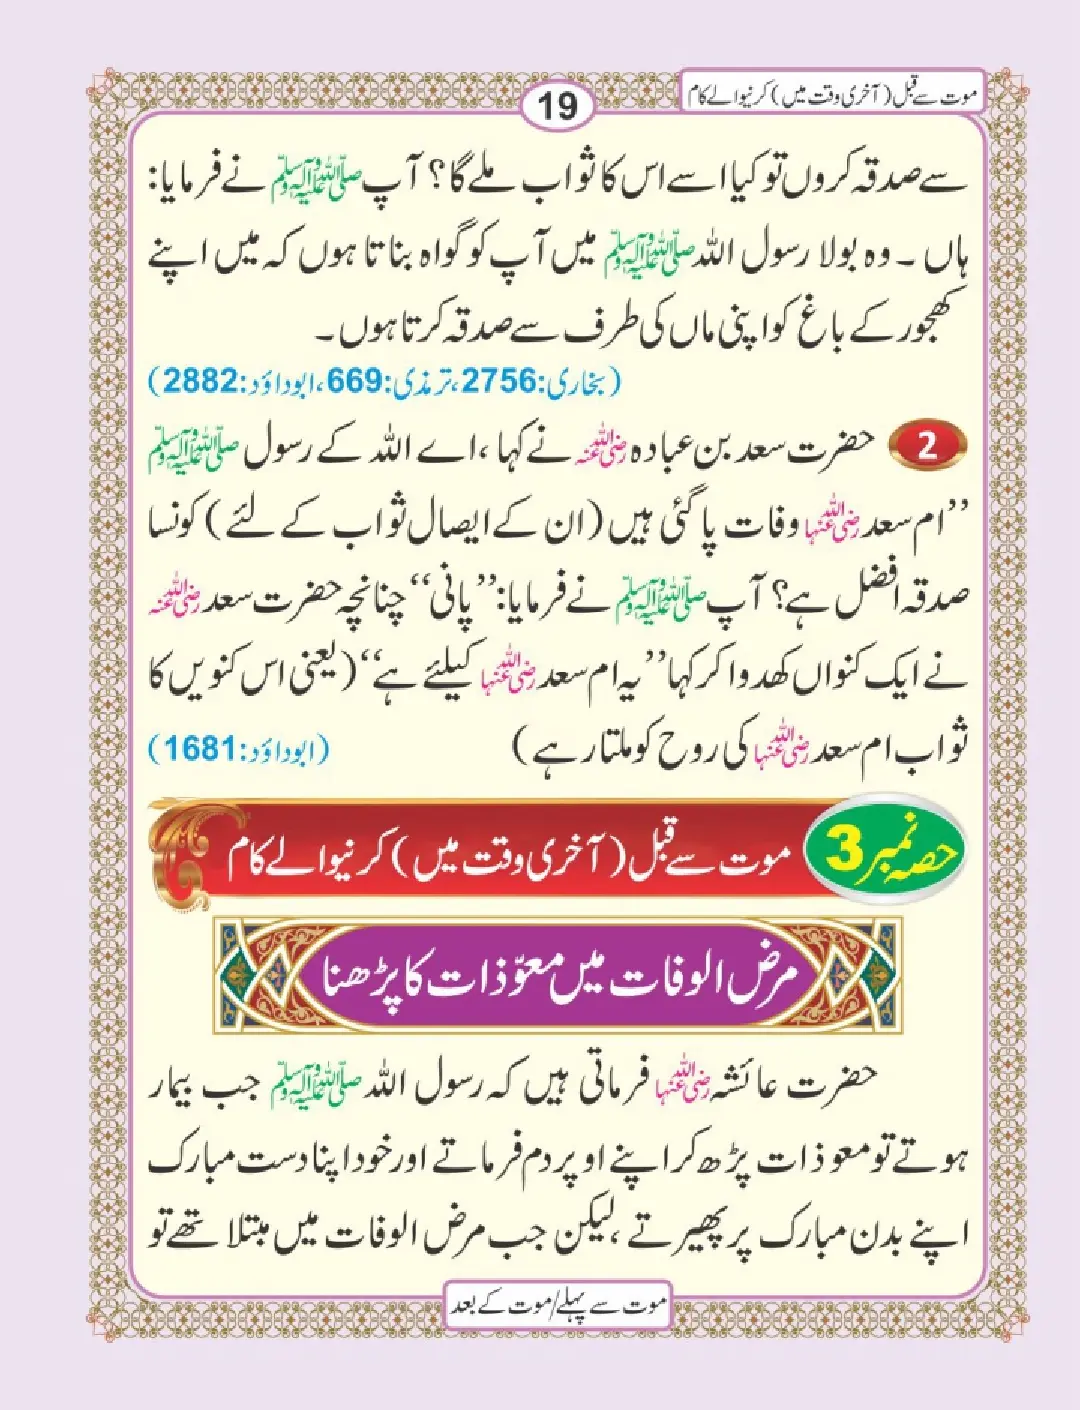 موت سے قبل (آخری وقت میں) کرنیوالے کام
19
سے صدقہ کروں تو کیا اسے اس کا ثواب ملے گا؟ آپ ﷺ نے فرمایا:
ہاں ۔ وہ بولا رسول اللہ ﷺ میں آپ کو گواہ بناتا ہوں کہ میں اپنے
کھجور کے باغ کو اپنی ماں کی طرف سے صدقہ کرتا ہوں۔
(بخاری:2756، ترمذی:669، ابوداؤد:2882)
2 حضرت سعد بن عبادہ رضی اللہ عنہ نے کہا، اے اللہ کے رسول ﷺ
”ام سعد رضی اللہ عنہا وفات پا گئی ہیں (ان کے ایصال ثواب کے لئے) کونسا
صدقہ افضل ہے؟ آپ ﷺ نے فرمایا: ”پانی“ چنانچہ حضرت سعد رضی اللہ عنہ
نے ایک کنواں کھدوا کر کہا ”یہ ام سعد رضی اللہ عنہا کیلئے ہے“ (یعنی اس کنویں کا
ثواب ام سعد رضی اللہ عنہا کی روح کو ملتا رہے) (ابوداؤد:1681)
حصہ نمبر 3 موت سے قبل (آخری وقت میں) کرنیوالے کام
مرض الوفات میں معوّذات کا پڑھنا
حضرت عائشہ رضی اللہ عنہا فرماتی ہیں کہ رسول اللہ ﷺ جب بیمار
ہوتے تو معوذات پڑھ کر اپنے اوپر دم فرماتے اور خود اپنا دست مبارک
اپنے بدن مبارک پر پھیرتے، لیکن جب مرض الوفات میں مبتلا تھے تو
موت سے پہلے/موت کے بعد